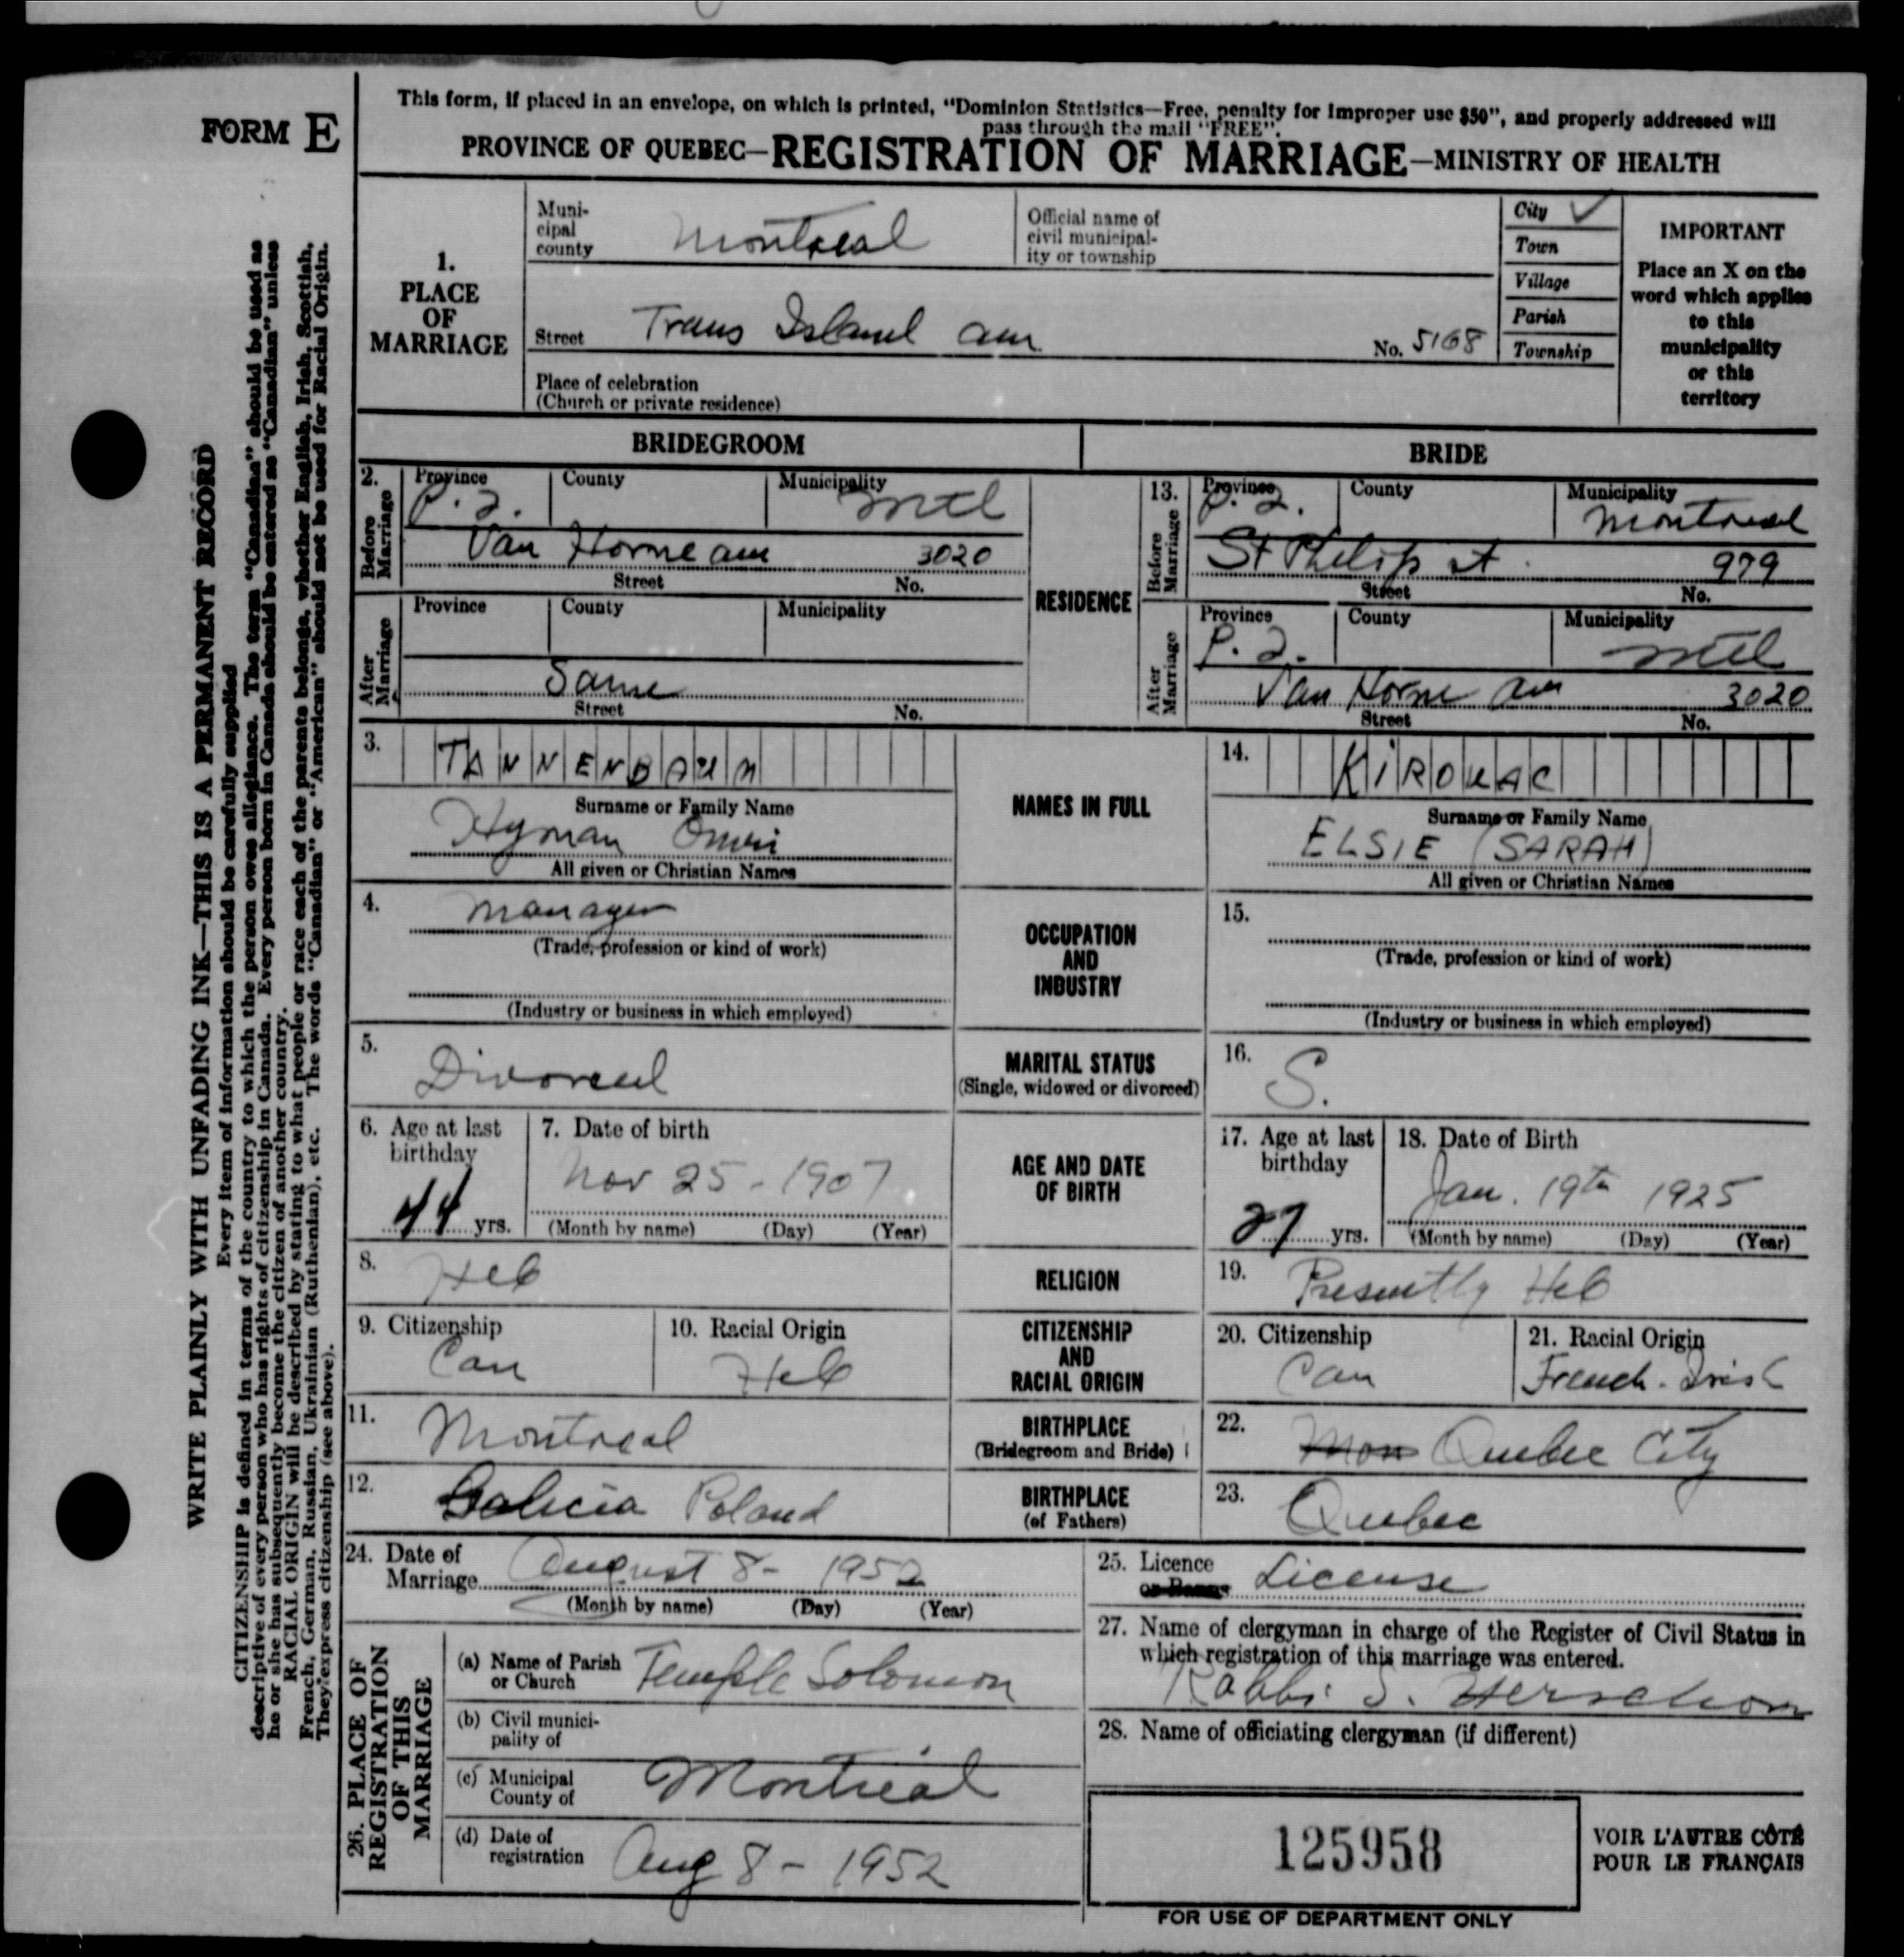 This form, if placed in an envelope, on which is printed, "Dominion Statistics—Free, penalty for improper use $50", and properly addressed will
pass through the mail "FREE".
FORM E
PROVINCE OF QUEBEC—REGISTRATION OF MARRIAGE—MINISTRY OF HEALTH
WRITE PLAINLY WITH UNFADING INK—THIS IS A PERMANENT RECORD
Every item of information should be carefully supplied
CITIZENSHIP is defined in terms of the country to which the person owes allegiance. The term "Canadian" should be used as
descriptive of every person who has rights of citizenship in Canada. Every person born in Canada should be entered as "Canadian" unless
he or she has subsequently become the citizen of another country.
RACIAL ORIGIN will be described by stating to what people or race each of the parents belongs, whether English, Irish, Scottish,
French, German, Russian, Ukrainian (Ruthenian), etc. The words "Canadian" or "American" should not be used for Racial Origin.
They express citizenship (see above).
1.
PLACE
OF
MARRIAGE
Muni-
cipal
county
Montreal
Official name of
civil municipal-
ity or township
City ✓
Town
Village
Parish
Township
IMPORTANT
Place an X on the
word which applies
to this
municipality
or this
territory
Street Trans Island No. 5168
Place of celebration
(Church or private residence)
BRIDEGROOM
BRIDE
2. Before Marriage
Province County Municipality
P.Q. Mtl
Van Horne 3020
Street No.
After Marriage
Province County Municipality
Same
Street No.
RESIDENCE
13. Before Marriage
Province County Municipality
P.Q. Montreal
St Philip st. 979
Street No.
After Marriage
Province County Municipality
P.Q. Mtl
Van Horne 3020
Street No.
3. TANNENBAUM
Surname or Family Name
Hyman
All given or Christian Names
NAMES IN FULL
14. KIROUAC
Surname or Family Name
ELSIE (SARAH)
All given or Christian Names
4. Manager
(Trade, profession or kind of work)
(Industry or business in which employed)
OCCUPATION
AND
INDUSTRY
15.
(Trade, profession or kind of work)
(Industry or business in which employed)
5. Divorced
MARITAL STATUS
(Single, widowed or divorced)
16. S.
6. Age at last
birthday
44 yrs.
7. Date of birth
Nov 25 - 1907
(Month by name) (Day) (Year)
AGE AND DATE
OF BIRTH
17. Age at last
birthday
27 yrs.
18. Date of Birth
Jan. 19th 1925
(Month by name) (Day) (Year)
8. Heb
RELIGION
19. Presently Heb
9. Citizenship
Can
10. Racial Origin
Heb
CITIZENSHIP
AND
RACIAL ORIGIN
20. Citizenship
Can
21. Racial Origin
French - Irish
11. Montreal
BIRTHPLACE
(Bridegroom and Bride)
22. Mon Quebec City
12. Galicia Poland
BIRTHPLACE
(of Fathers)
23. Quebec
24. Date of
Marriage August 8 - 1952
(Month by name) (Day) (Year)
25. Licence
or Banns License
26. PLACE OF
REGISTRATION
OF THIS
MARRIAGE
(a) Name of Parish
or Church
Temple Solomon
(b) Civil munici-
pality of
(c) Municipal
County of
Montréal
(d) Date of
registration
Aug 8 - 1952
27. Name of clergyman in charge of the Register of Civil Status in
which registration of this marriage was entered.
Rabbi S. Herschorn
28. Name of officiating clergyman (if different)
125958
FOR USE OF DEPARTMENT ONLY
VOIR L'AUTRE CÔTÉ
POUR LE FRANÇAIS